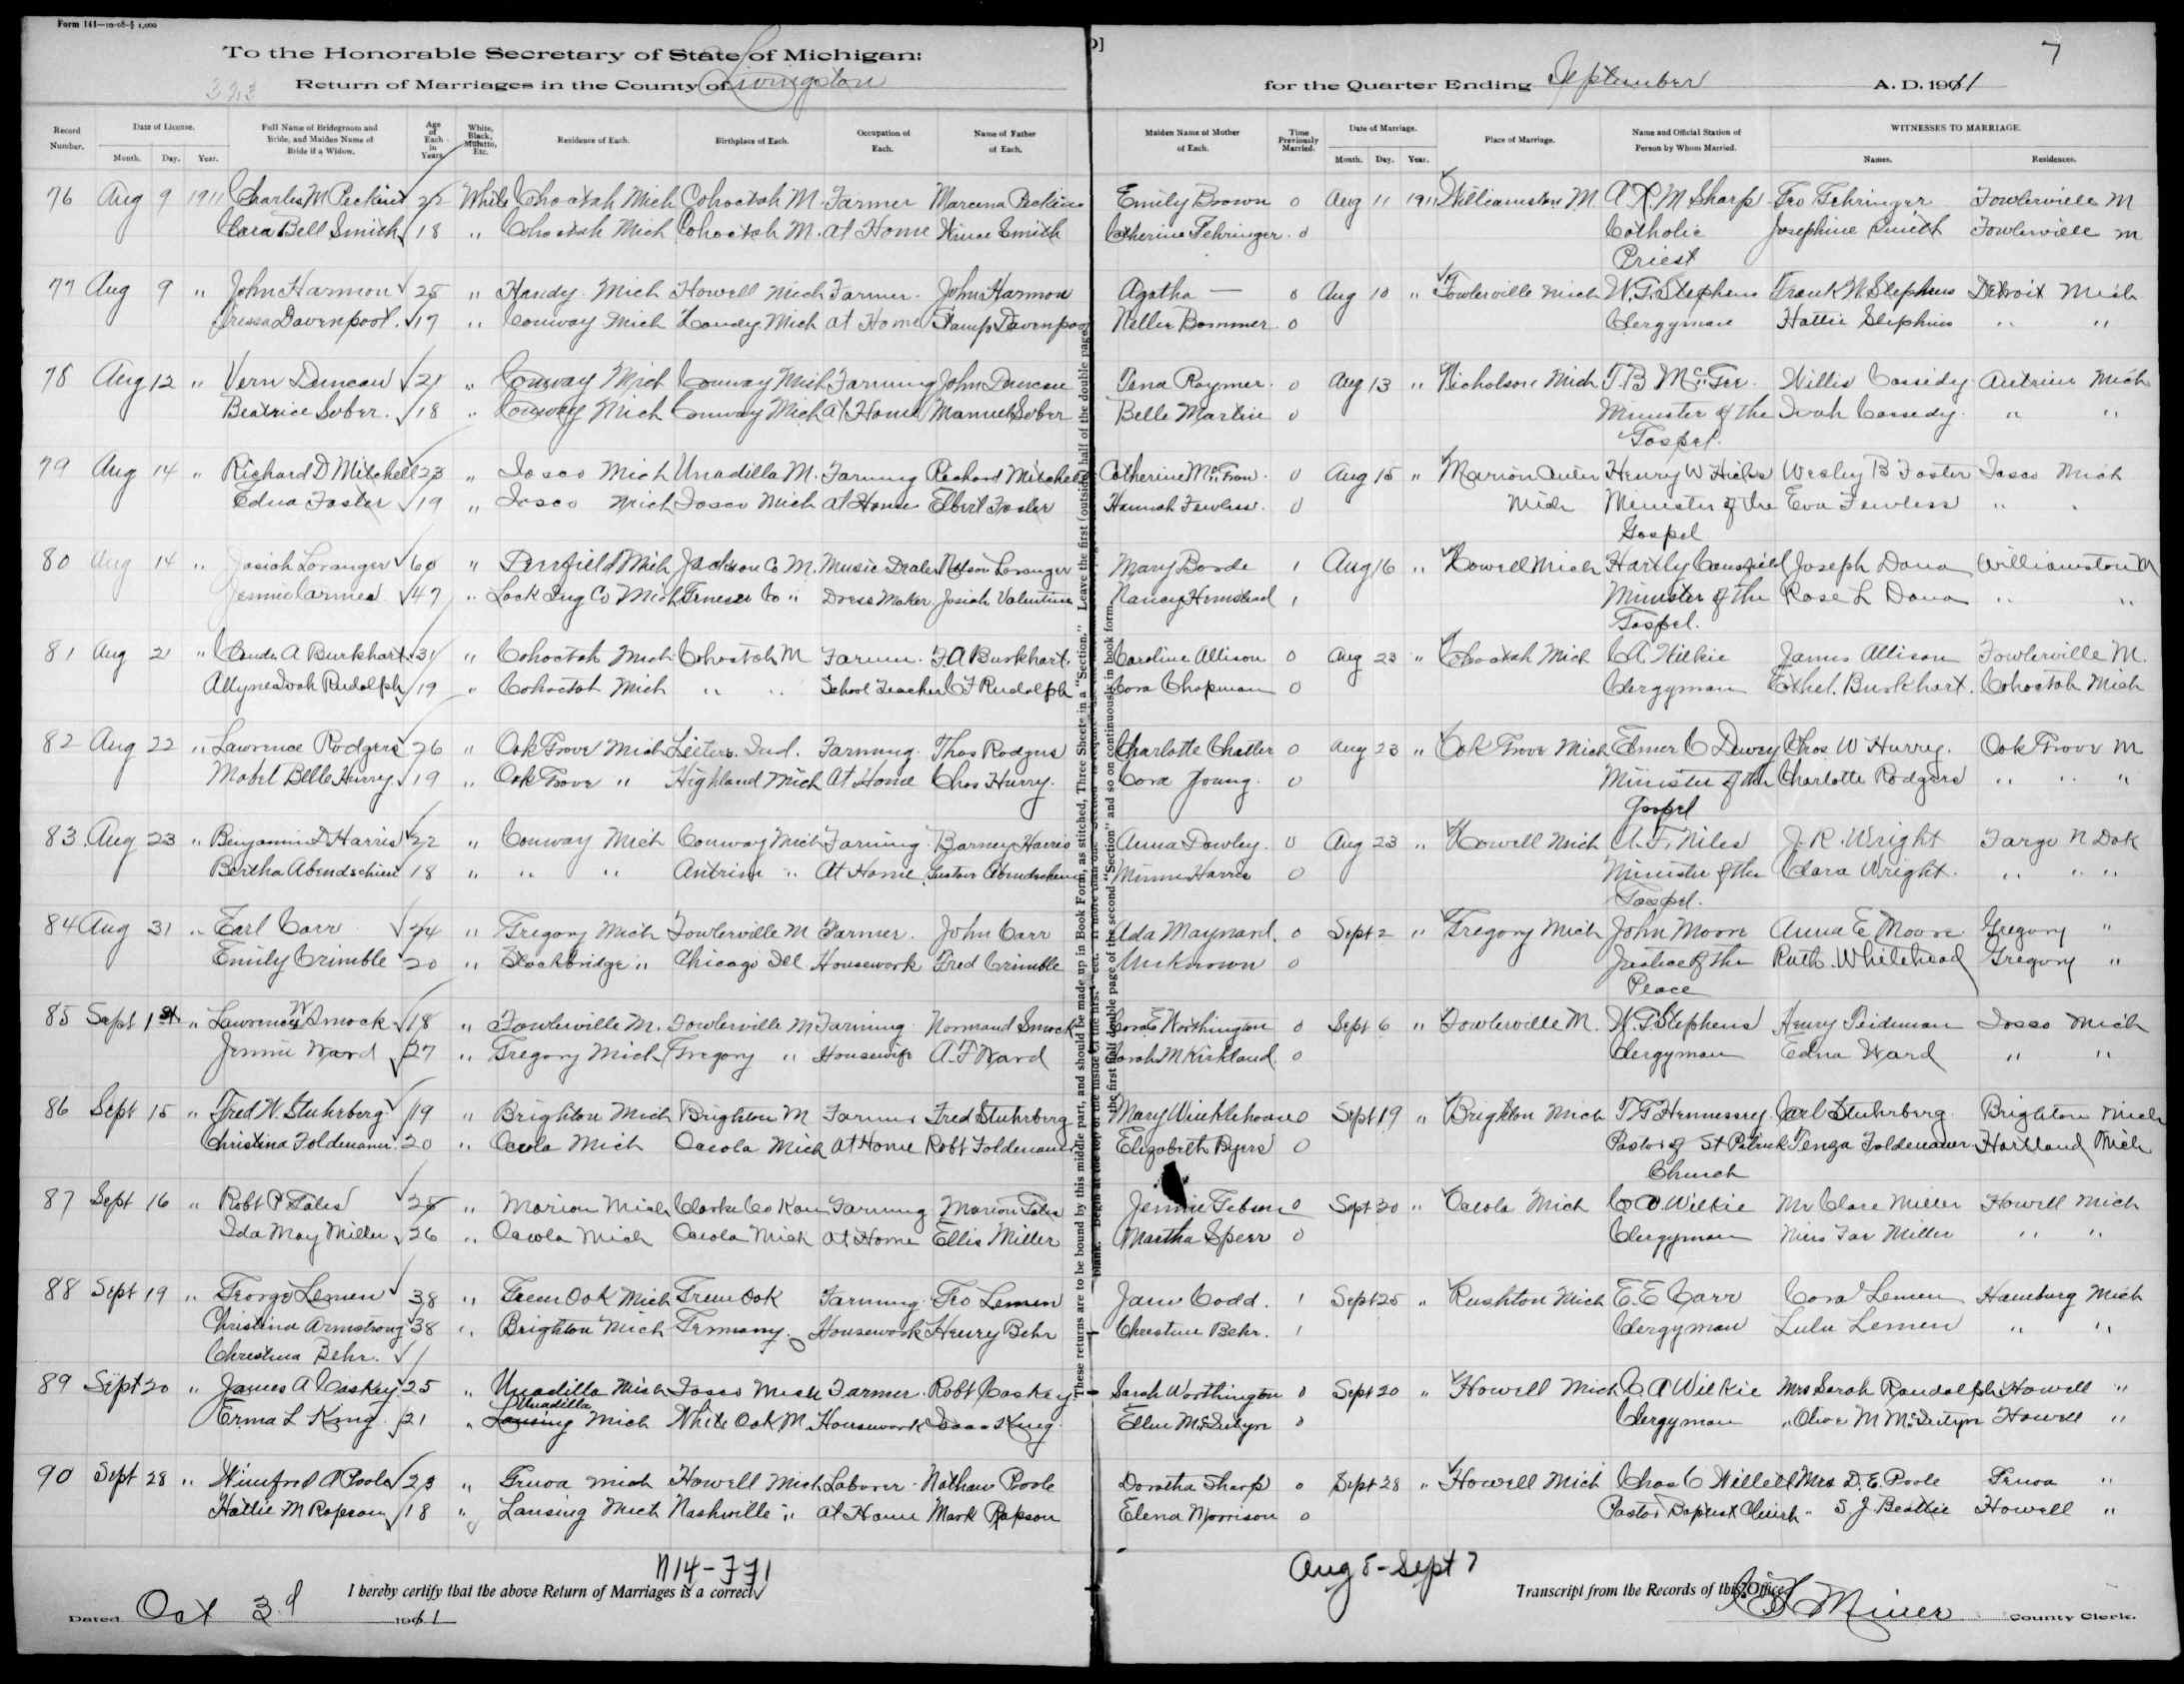 Form 141—10-08-§ 1,000
To the Honorable Secretary of State of Michigan:
7
323 Return of Marriages in the County of Livingston for the Quarter Ending September A. D. 1911
Record Number. Date of License. Month. Day. Year. Full Name of Bridegroom and Bride, and Maiden Name of Bride if a Widow. Age of Each in Years. White, Black, Mulatto, Etc. Residence of Each. Birthplace of Each. Occupation of Each. Name of Father of Each. Maiden Name of Mother of Each. Time Previously Married. Date of Marriage. Month. Day. Year. Place of Marriage. Name and Official Station of Person by Whom Married. WITNESSES TO MARRIAGE. Names. Residences.
76 Aug 9 1911 Charles M Perkins 22 White Cohoctah Mich Cohoctah M. Farmer Perkins Emily Brown 0 Aug 11 1911 Williamston M Sharp Geo Fehringer Fowlerville M
Bell Smith 18 " Cohoctah Mich Cohoctah M. at Home Smith Catherine Fehringer 0 Catholic Josephine Smith Fowlerville M
Priest
77 Aug 9 " John Harmon 25 " Handy Mich Howell Mich Farmer John Harmon Agatha — 0 Aug 10 " Fowlerville Mich W. G. Stephens Frank W Stephens Detroit Mich
Davenpoor 17 " Conway Mich Handy Mich at Home Davenpoor Nellie Bommer 0 Clergyman Hattie Stephens " "
78 Aug 12 " Vern Duncan 21 " Conway Mich Conway Mich Farming John Duncan Tena Raymer 0 Aug 13 " Nicholson Mich Willis Cassidy Antrim Mich
Beatrice Sober 18 " Conway Mich Conway Mich at Home Manuel Sober Belle Martin 0 Minister of the Ivah Cassedy " "
Gospel.
79 Aug 14 " Richard D Mitchell 23 " Iosco Mich Unadilla M. Farming Richard Mitchell Catherine 0 Aug 15 " Marion Henry W Hicks Wesley B Foster Iosco Mich
Edna Foster 19 " Iosco Mich Iosco Mich at Home Elbert Foster Hannah Fewless 0 Mich Minister of the Eva Fewless "
Gospel
80 Aug 14 " Josiah Loranger 60 " Mich Jackson Co M. Music Dealer Nelson Loranger Mary 1 Aug 16 " Howell Mich Hartly Joseph Dana Williamston M
Jennie 47 " Lock Ing Co Mich Genesee Co " Dress Maker Josiah Valentine Nancy 1 Minister of the Rose L Dana " "
Gospel.
81 Aug 21 " Claude A Burkhart 31 " Cohoctah Mich Cohoctah M Farmer F. A Burkhart Caroline Allison 0 Aug 23 " Cohoctah Mich C A Wilkie James Allison Fowlerville M.
Ivah Rudolph 19 " Cohoctah Mich " " School Teacher C F Rudolph Cora Chapman 0 Clergyman Ethel Burkhart Cohoctah Mich
82 Aug 22 " Lawrence Rodgers 26 " Oak Grove Mich Ind. Farming Thos Rodgers Charlotte 0 Aug 23 " Oak Grove Mich Elmer C Dewey Chas W Hurry. Oak Grove M
Mabel Belle Hurry 19 " Oak Grove " Highland Mich At Home Chas Hurry. Cora Young. 0 Minister of the Charlotte Rodgers " " "
Gospel
83 Aug 23 " Benjamin D Harris 22 " Conway Mich Conway Mich Farming Barney Harris Anna Dowley 0 Aug 23 " Howell Mich A. F. Niles J. R. Wright Fargo N Dak
Bertha Abendschein 18 " " " Antrim " At Home Gustave Abendschein Minnie Harris 0 Minister of the Clara Wright " " "
Gospel.
84 Aug 31 " Earl Carr 24 " Gregory Mich Fowlerville M Farmer John Carr Ada Maynard 0 Sept 2 " Gregory Mich John Moore Anna E Moore Gregory "
Emily Crimble 20 " Stockbridge " Chicago Ill Housework Fred Crimble Unknown 0 Justice of the Ruth Whitehead Gregory "
Peace
85 Sept 1st " Lawrence W Smock 18 " Fowlerville M. Fowlerville M Farming Normand Smock Cora E Worthington 0 Sept 6 " Fowlerville M. W. G. Stephens Henry Iosco Mich
Jennie Ward 27 " Gregory Mich Gregory " Housewife A. F Ward Sarah M Kirkland 0 Clergyman Edna Ward " "
86 Sept 15 " Fred W. Stuhrberg 19 " Brighton Mich Brighton M Farmer Fred Stuhrberg Mary Winklehouse 0 Sept 19 " Brighton Mich T G Hennessey Carl Stuhrberg Brighton Mich
Christina Foldenauer 20 " Oceola Mich Oceola Mich At Home Robt Foldenauer Elizabeth Byers 0 Pastor of St Patrick Foldenauer Hartland Mich
Church
87 Sept 16 " Robt P Fales 25 " Marion Mich Clarke Co Kan Farming Marion Fales Jennie 0 Sept 20 " Oceola Mich C A Wilkie Mr Clare Miller Howell Mich
Ida May Miller 26 " Oceola Mich Oceola Mich At Home Ellis Miller Martha Sperr 0 Clergyman Miss Fae Miller " "
88 Sept 19 " George Lemen 38 " Green Oak Mich Green Oak Farming Geo Lemen Jane Codd. 1 Sept 25 " Rushton Mich E. E Carr Cora Lemen Hamburg Mich
Christina Armstrong 38 " Brighton Mich Germany Housework Henry Behr Christine Behr. 1 Clergyman Lulu Lemen " "
Christina Behr.
89 Sept 20 " James A Caskey 25 " Unadilla Mich Iosco Mich Farmer Robt Caskey Sarah Worthington 0 Sept 20 " Howell Mich C A Wilkie Mrs Sarah Randolph Howell "
Erma L King 21 " Unadilla Lansing Mich White Oak M. Housework Isaac King Ellen 0 Clergyman " Olive M Howell "
90 Sept 28 " Winifred A Poole 23 " Genoa Mich Howell Mich Laborer Nathan Poole Dorotha Sharp 0 Sept 28 " Howell Mich Chas C Willett Mrs D. E. Poole Genoa "
Hattie M Rapson 18 " Lansing Mich Nashville " At Home Mark Rapson Elena Morrison 0 Pastor Baptist Church " S J Beattie Howell "
These returns are to be bound by this middle part, and should be made up in Book Form, as stitched, Three Sheets in a "Section." Leave the first (outside) half of the double page
the first half double page of the second "Section" and so on continuously in book form.
1114-771
Aug 8-Sept 7
I hereby certify that the above Return of Marriages is a correct Transcript from the Records of this Office
Dated Oct 3d 1911 Miner County Clerk.